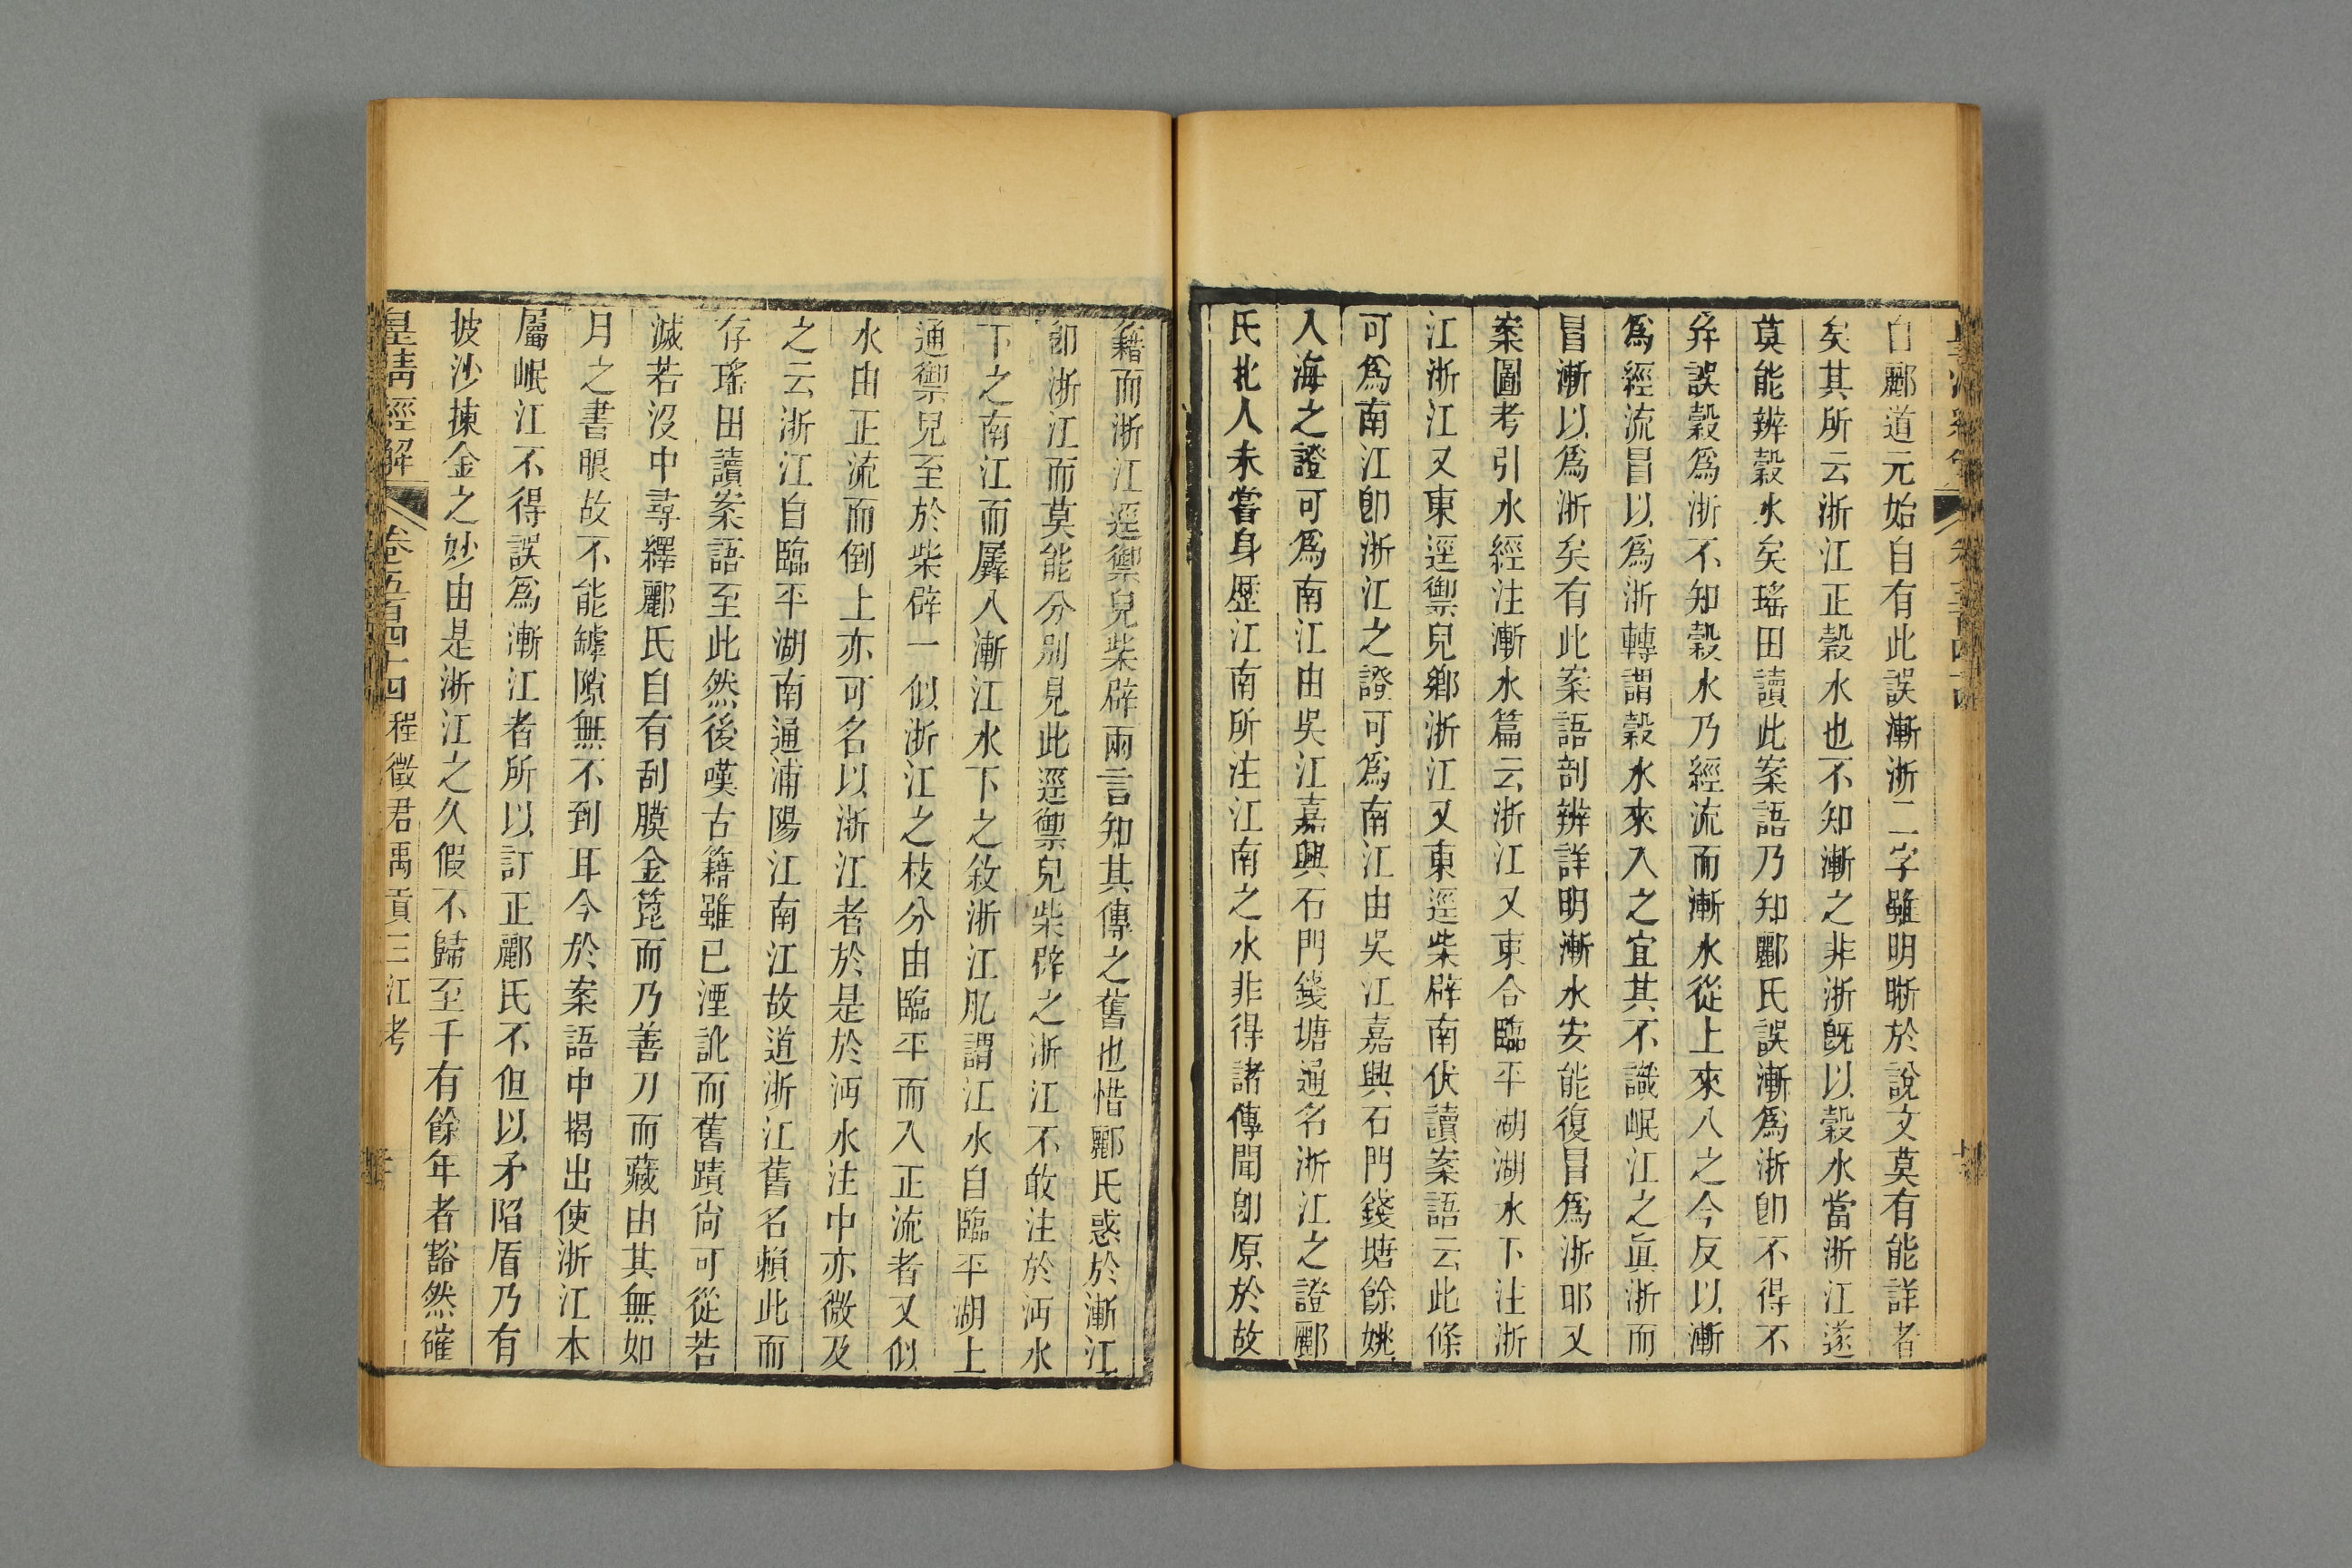 自酈道元始自有此誤漸浙二字雖明晣於說文莫有能詳者
矣其所云浙江正穀水也不知漸之非浙旣以穀水當浙江遂
莫能辨穀水矣瑤田讀此案語乃知酈氏誤漸爲浙卽不得不
幷誤穀爲浙不知穀水乃經流而漸水從上來入之今反以漸
爲經流冒以爲浙轉謂穀水來入之宜其不識岷江之眞浙而
冒漸以爲浙矣有此案語剖辨詳明漸水安能復冒爲浙耶又
案圖考引水經注漸水篇云浙江又東合臨平湖湖水下注浙
江浙江又東逕禦兒鄉浙江又東逕柴辟南伏讀案語云此條
可爲南江卽浙江之證可爲南江由吳江嘉興石門錢塘餘姚
入海之證可爲南江由吳江嘉興石門錢塘通名浙江之證酈
氏北人未嘗身歷江南所注江南之水非得諸傳聞卽原於故
籍而浙江逕禦兒柴辟兩言知其傳之舊也惜酈氏惑於漸江
卽浙江而莫能分別見此逕禦兒柴辟之浙江不敢注於沔水
下之南江而羼入漸江水下之敘浙江肊謂江水自臨平湖上
通禦兒至於柴辟一似浙江之枝分由臨平而入正流者又似
水由正流而倒上亦可名以浙江者於是於沔水注中亦微及
之云浙江自臨平湖南通浦陽江南江故道浙江舊名賴此而
存瑤田讀案語至此然後嘆古籍雖已湮訛而舊蹟尙可從若
滅若沒中尋繹酈氏自有刮膜金箆而乃善刀而藏由其無如
月之書眼故不能罅隙無不到耳今於案語中揭出使浙江本
屬岷江不得誤爲漸江者所以訂正酈氏不但以矛陷盾乃有
披沙揀金之妙由是浙江之久假不歸至千有餘年者豁然確
皇淸經解 卷五百四十四 程徵君禹貢三江考